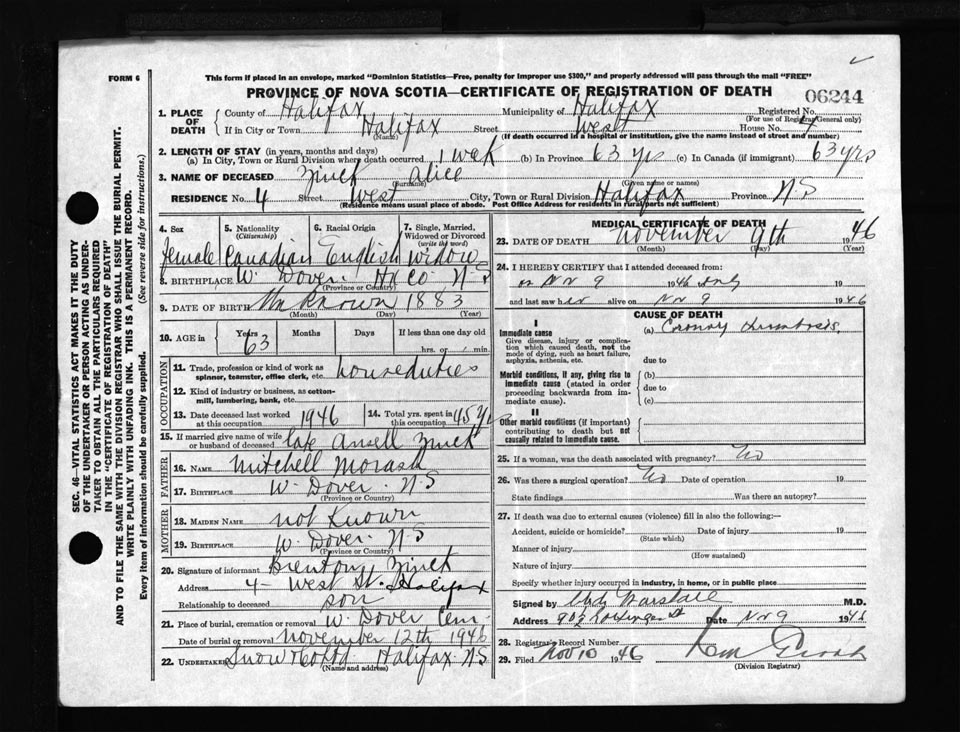 FORM 6
This form if placed in an envelope, marked "Dominion Statistics—Free, penalty for improper use $300," and properly addressed will pass through the mail "FREE"
PROVINCE OF NOVA SCOTIA—CERTIFICATE OF REGISTRATION OF DEATH
06244
1. PLACE OF DEATH County of Halifax Municipality of Halifax Registered No.
(For use of Registrar General only)
If in City or Town Halifax Street West House No. 4
(Name) (If death occurred in a hospital or institution, give the name instead of street and number)
2. LENGTH OF STAY (in years, months and days)
(a) In City, Town or Rural Division where death occurred 1 wek (b) In Province 63 yrs (c) In Canada (if immigrant) 63 yrs
3. NAME OF DECEASED Zinck Alice
(Surname) (Given name or names)
RESIDENCE No. 4 Street West City, Town or Rural Division Halifax Province NS
(Residence means usual place of abode. Post Office Address for residents in rural parts not sufficient)
4. Sex 5. Nationality (Citizenship) 6. Racial Origin 7. Single, Married, Widowed or Divorced (write the word)
female Canadian English widow
8. BIRTHPLACE W. Dover Hx Co. N-S
(Province or Country)
9. DATE OF BIRTH Unknown 1883
(Month) (Day) (Year)
10. AGE in Years Months Days If less than one day old
63 hrs. or min.
OCCUPATION
11. Trade, profession or kind of work as spinner, teamster, office clerk, etc. houseduties
12. Kind of industry or business, as cotton-mill, lumbering, bank, etc.
13. Date deceased last worked at this occupation 1946 14. Total yrs. spent in this occupation 45 yr
15. If married give name of wife or husband of deceased late Ansell Zinck
FATHER
16. NAME Mitchell Morash
17. BIRTHPLACE W. Dover. N-S
(Province or Country)
MOTHER
18. MAIDEN NAME not Known
19. BIRTHPLACE W. Dover. N-S
(Province or Country)
20. Signature of informant Brenton Zinck
Address 4 - West St. Halifax
Relationship to deceased son
21. Place of burial, cremation or removal W. Dover Cem.
Date of burial or removal November 12th 1946
22. UNDERTAKER Snow & Co Ltd Halifax. NS
(Name and address)
MEDICAL CERTIFICATE OF DEATH
23. DATE OF DEATH November 9th 1946
(Month) (Day) (Year)
24. I HEREBY CERTIFY that I attended deceased from:
on Nov 9 1946 only 19
and last saw her alive on Nov 9 1946
CAUSE OF DEATH
I
Immediate cause (a) Coronary thrombosis.
Give disease, injury or complication which caused death, not the mode of dying, such as heart failure, asphyxia, asthenia, etc.
due to
Morbid conditions, if any, giving rise to immediate cause (stated in order proceeding backwards from immediate cause).
(b)
due to
(c)
II
Other morbid conditions (if important) contributing to death but not causally related to immediate cause.
25. If a woman, was the death associated with pregnancy? No
26. Was there a surgical operation? No Date of operation 19
State findings Was there an autopsy?
27. If death was due to external causes (violence) fill in also the following:—
Accident, suicide or homicide? Date of injury 19
(State which)
Manner of injury
(How sustained)
Nature of injury
Specify whether injury occurred in industry, in home, or in public place
Signed by M.D.
Address Date Nov 9 1946
28. Registrar's Record Number
29. Filed Nov 10 1946
(Division Registrar)
SEC. 46—VITAL STATISTICS ACT MAKES IT THE DUTY
OF THE UNDERTAKER OR PERSON ACTING AS UNDERTAKER TO OBTAIN ALL THE PARTICULARS REQUIRED
IN THE "CERTIFICATE OF REGISTRATION OF DEATH"
AND TO FILE THE SAME WITH THE DIVISION REGISTRAR WHO SHALL ISSUE THE BURIAL PERMIT.
WRITE PLAINLY WITH UNFADING INK. THIS IS A PERMANENT RECORD.
Every item of information should be carefully supplied. (See reverse side for instructions.)